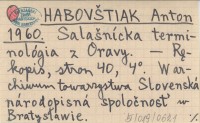 HABOVŠTIAK Anton
1960. Salašnícka termi-
nológia z Oravy. – Rę-
kopis, stron 40, 4°. W ar-
chiwum towarzystwa Slovenská
národopisná spoločnosť w
Bratysławie.